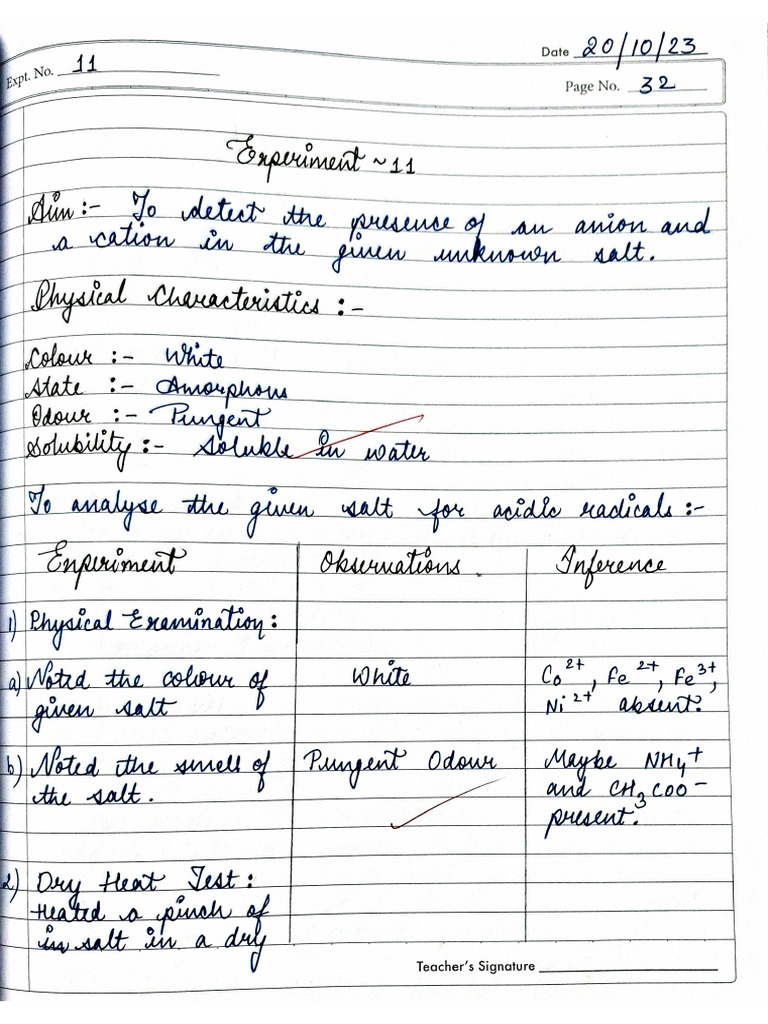 Date 20/10/23
Expt. No. 11
Page No. 32
Experiment ~ 11
Aim :- To detect the presence of an anion and
a cation in the given unknown salt.
Physical Characteristics :-
Colour :- White
State :- Amorphous
Odour :- Pungent
Solubility :- Soluble in water
To analyse the given salt for acidic radicals :-
Experiment Observations. Inference
1) Physical Examination:
a) Noted the colour of White Co²⁺, Fe²⁺, Fe³⁺,
given salt Ni²⁺ absent.
b) Noted the smell of Pungent Odour Maybe NH₄⁺
the salt. and CH₃COO⁻
present.
2) Dry Heat Test:
Heated a pinch of
in salt in a dry
Teacher's Signature